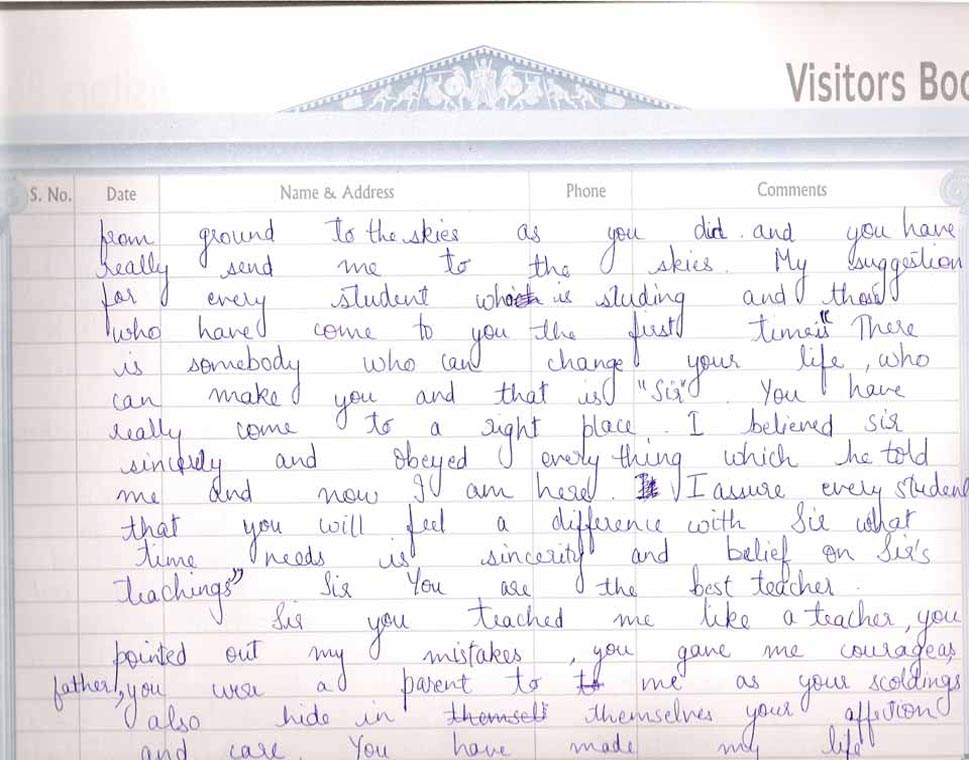 Visitors Boo
S. No. Date Name & Address Phone Comments
from ground to the skies as you did. and you have
really send me to the skies. My suggestion
for every student who is studing and those
who have come to you the first time is "There
is somebody who can change your life, who
can make you and that is "Sir". You have
really come to a right place. I believed sir
sincerely and obeyed every thing which he told
me and now I am here. I assure every student
that you will feel a difference with Sir what
time needs is sincerity and belief on Sir's
teachings" Sir You are the best teacher.
Sir you teached me like a teacher, you
pointed out my mistakes, you gave me courage as
father, you were a parent to me as your scoldings
also hide in themselves your affection
and care. You have made my life